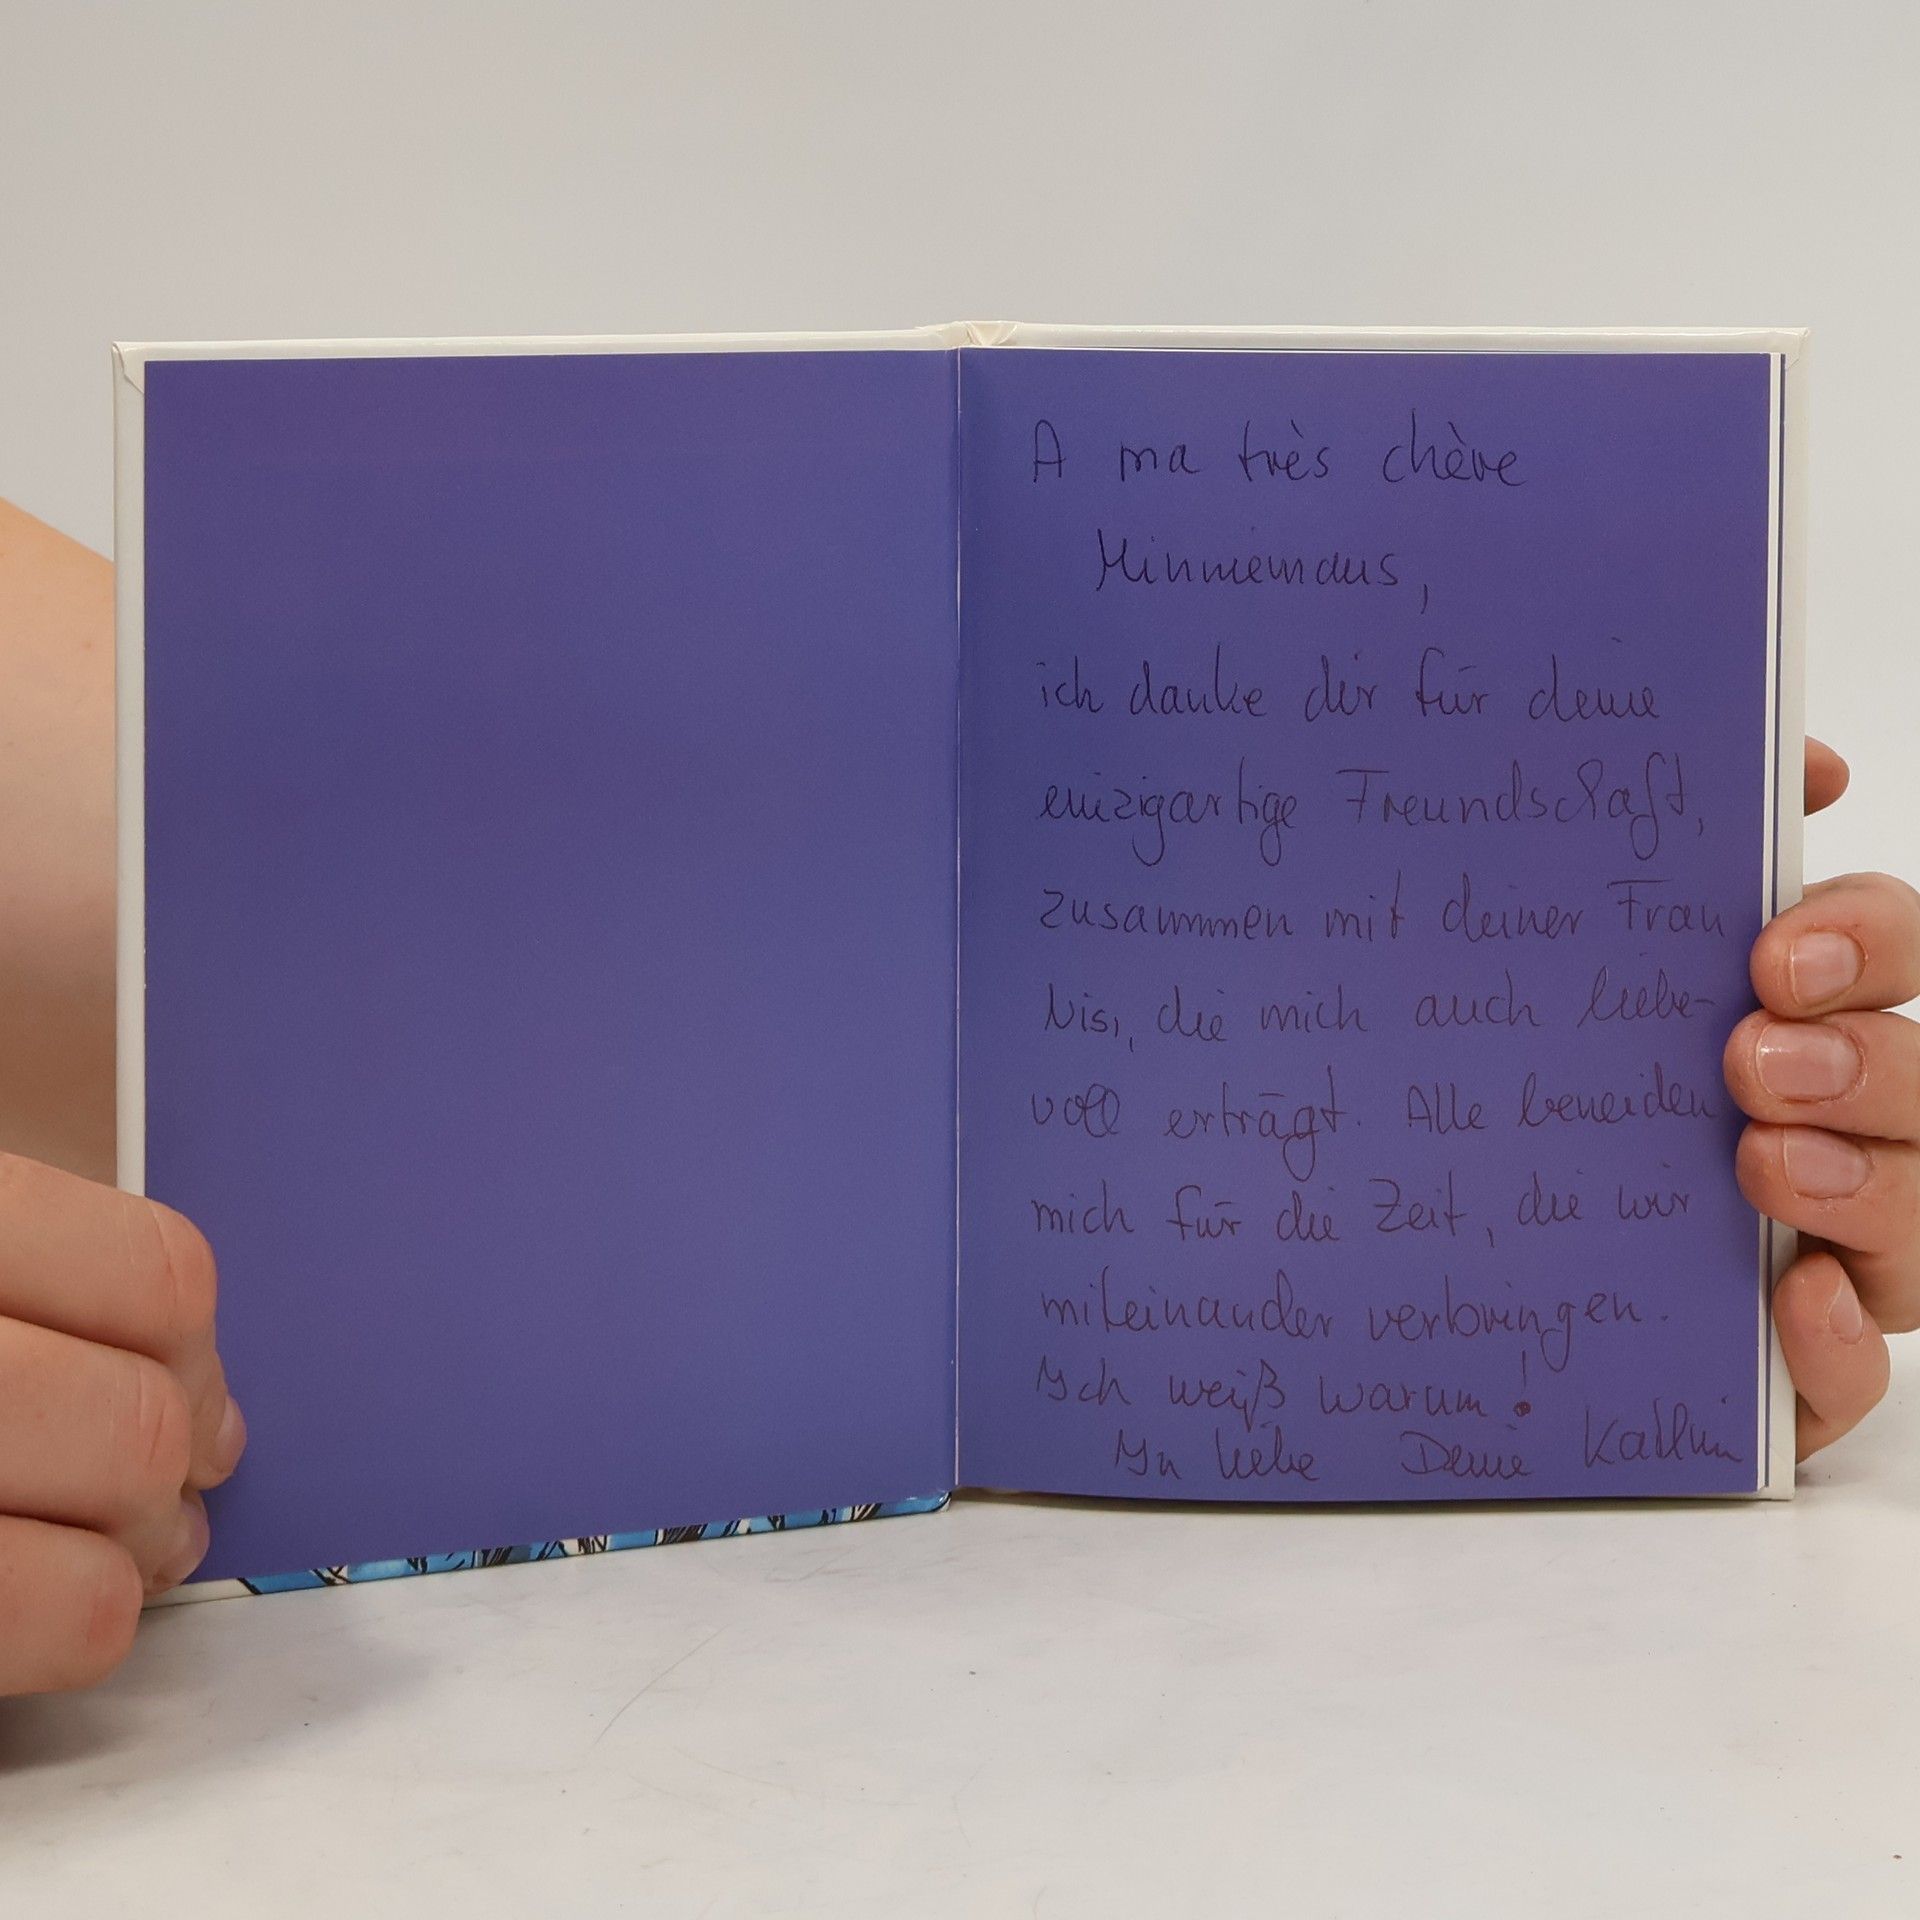 A ma très chère
Minniemaus,
ich danke dir für deine
einzigartige Freundschaft,
zusammen mit deiner Frau
die mich auch liebe-
voll erträgt. Alle beneiden
mich für die Zeit, die wir
miteinander verbringen.
Ich weiß warum!
In Liebe Deine